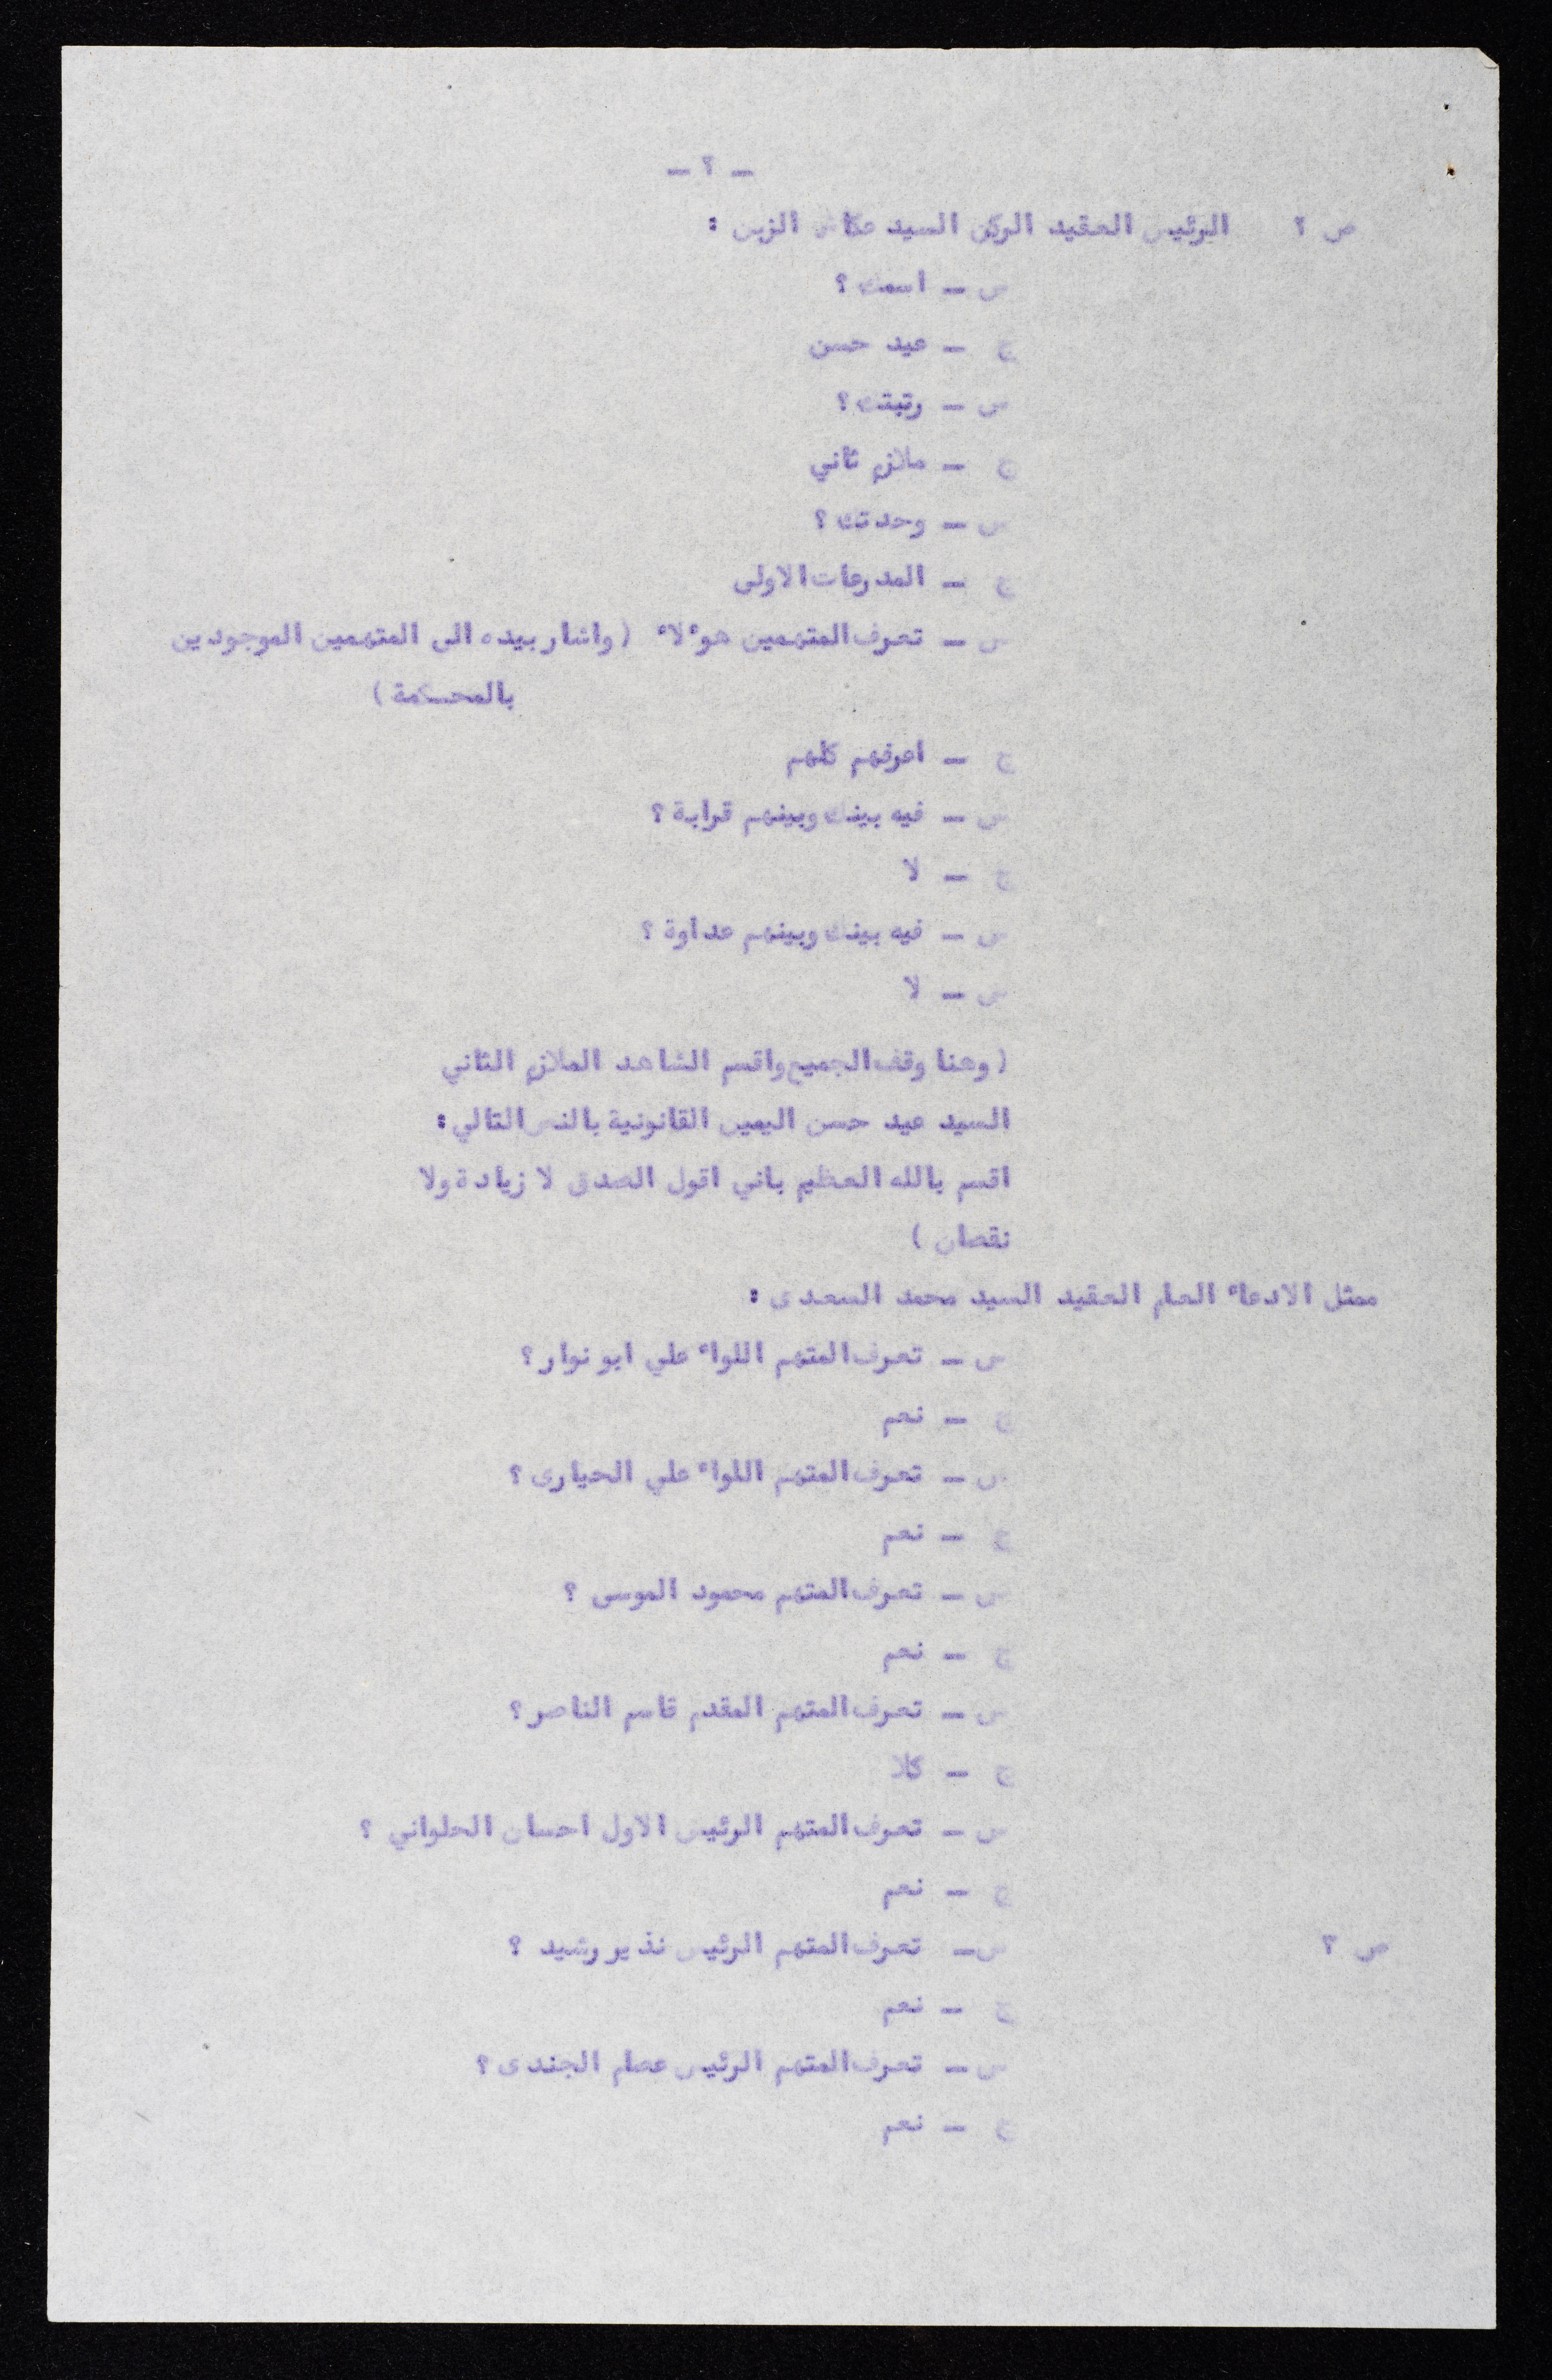 - ٢ -
ص ٢ الرئيس العقيد الركن السيد عكاش الزبن :
س - اسمك ؟
ج - عيد حسن
س - رتبتك ؟
ج - ملازم ثاني
س - وحدتك ؟
ج - المدرعات الاولى
س - تعرف المتهمين هو٠لا٠ ( واشار بيده الى المتهمين الموجودين
بالمحكمة )
ج - اعرفهم كلهم
س - فيه بينك وبينهم قرابة ؟
ج - لا
س - فيه بينك وبينهم عداوة ؟
س - لا
( وهنا وقف الجميع واقسم الشاهد الملازم الثاني
السيد عيد حسن اليمين القانونية بالنص التالي :
اقسم بالله العظيم باني اقول الصدق لا زيادة ولا
نقصان )
ممثل الادعاء العام العقيد السيد محمد السعدى :
س - تعرف المتهم اللواء علي ابو نوار ؟
ج - نعم
س - تعرف المتهم اللواء علي الحيارى ؟
ج - نعم
س - تعرف المتهم محمود الموسى ؟
ج - نعم
س - تعرف المتهم المقدم قاسم الناصر ؟
ج - كلا
س - تعرف المتهم الرئيس الاول احسان الحلواني ؟
ج - نعم
ص ٢ س - تعرف المتهم الرئيس نذير رشيد ؟
ج - نعم
س - تعرف المتهم الرئيس عصام الجندى ؟
ج - نعم